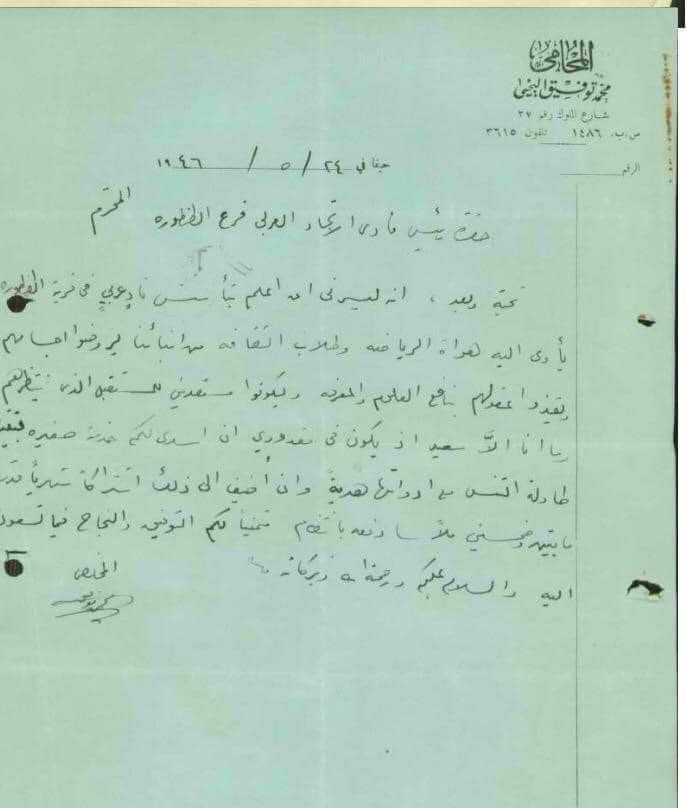 المحامي
محمد توفيق اليحيى
شارع الملوك رقم ٣٧
ص.ب. ١٤٨٦ تلفون ٣٦١٥
الرقم
حيفا في ٢٤ / ٥ / ١٩٤٦
حضرة رئيس نادي الاتحاد العربي فرع الطنطوره المحترم
تحية وبعد ، انه ليسرني ان اعلم بتأسيس نادٍ عربي في قرية الطنطوره
يأوى اليه هواة الرياضه وطلاب الثقافه من ابنائنا ليروضوا اجسامهم
ويغذوا عقولهم بنافع العلوم والمعرفه وليكونوا مستعدين للمستقبل الذي ينتظرهم
وما انا الاّ سعيد اذ يكون في مقدوري ان اسدى لكم خدمة صغيره
طاولة التنس مع ادواتها هدية وان أضيف الى ذلك اشتراكاً شهرياً
مايتين وخمسين ملاً سادفعه بانتظام متمنياً لكم التوفيق والنجاح فيما تسعون
اليه والسلام عليكم ورحمة الله وبركاته
المخلص